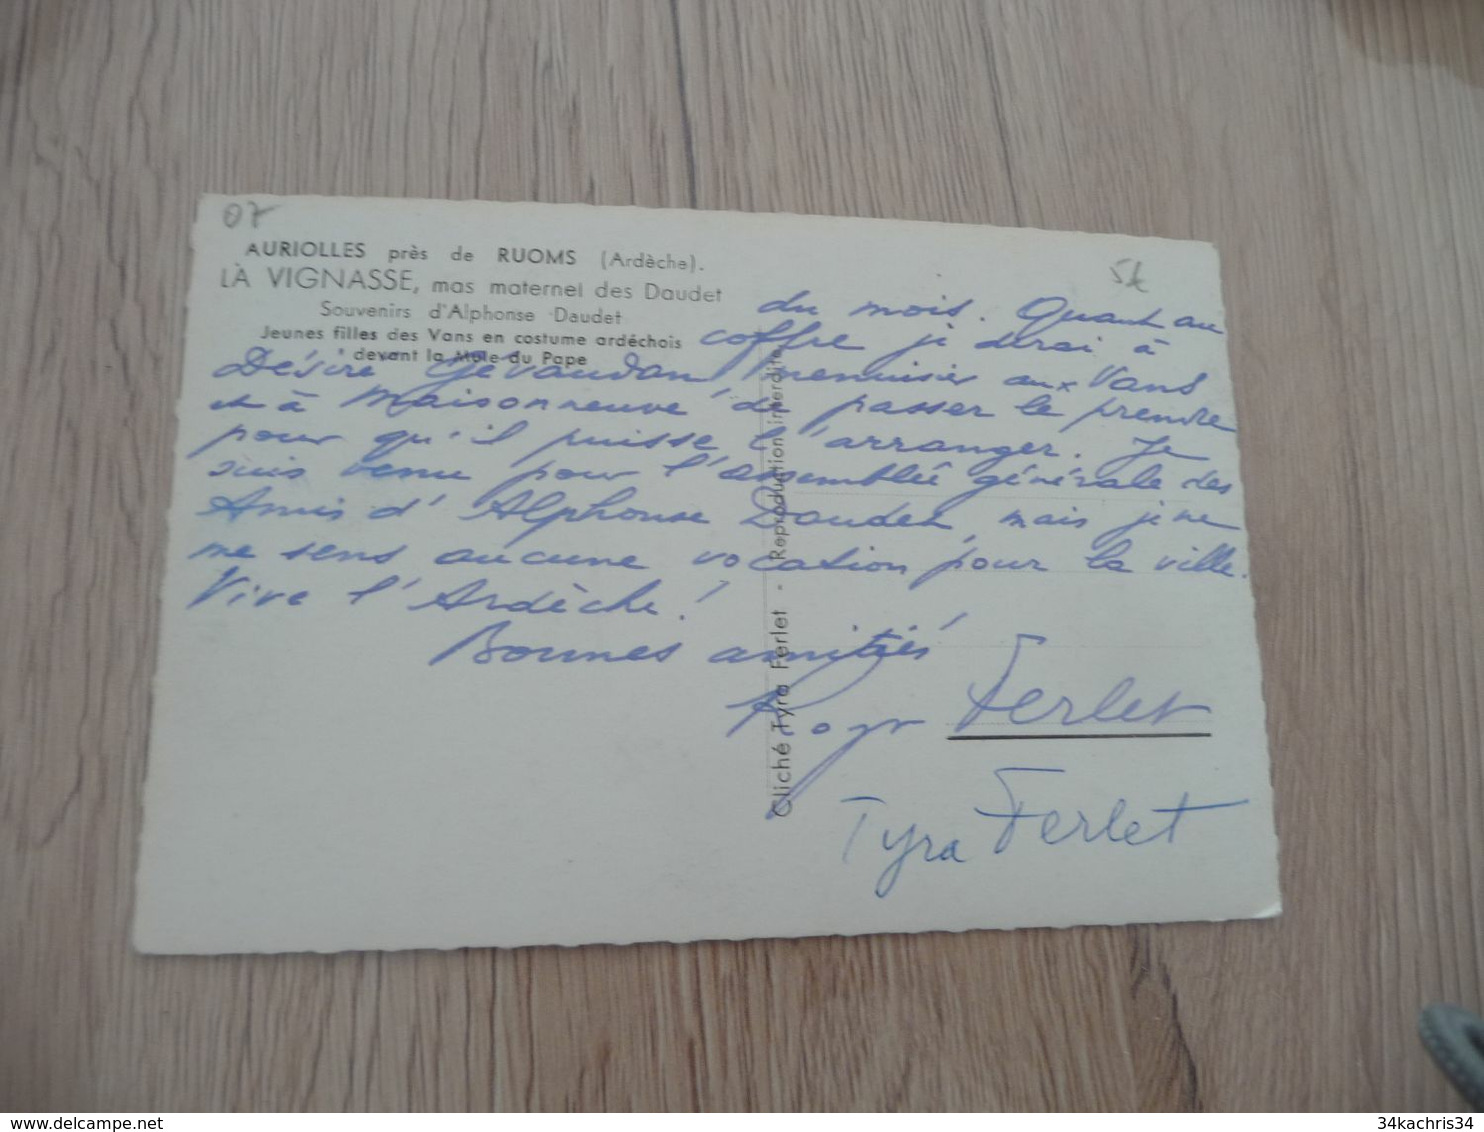 07
AURIOLLES près de RUOMS (Ardèche).
LA VIGNASSE, mas maternel des Daudet
Souvenirs d'Alphonse Daudet
Jeunes filles des Vans en costume ardéchois
devant la Mule du Pape
5€
du mois. Quant au
coffre je dirai à
Désiré Gévaudan menuisier aux Vans
et à Maisonneuve de passer le prendre
pour qu'il puisse l'arranger. Je
suis venu pour l'assemblée générale des
Amis d'Alphonse Daudet, mais je ne
me sens aucune vocation pour la ville.
Vive l'Ardèche!
Bonnes amitiés
Roger Ferlet
Tyra Ferlet
Cliché Tyra Ferlet - Reproduction interdite
delcampe.net
34kachris34